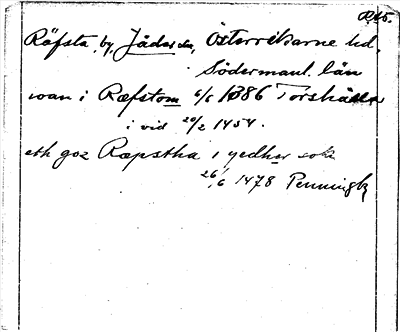 R45.
Röfsta, by, Jäders sn, Österrekarne hd,
Södermanl. län
wan i Ræfstom 6/6 1386 Torshälla
i vid 20/2 1454.
eth goz Ræpstha i gedher sokn
26/6 1478 Penningb